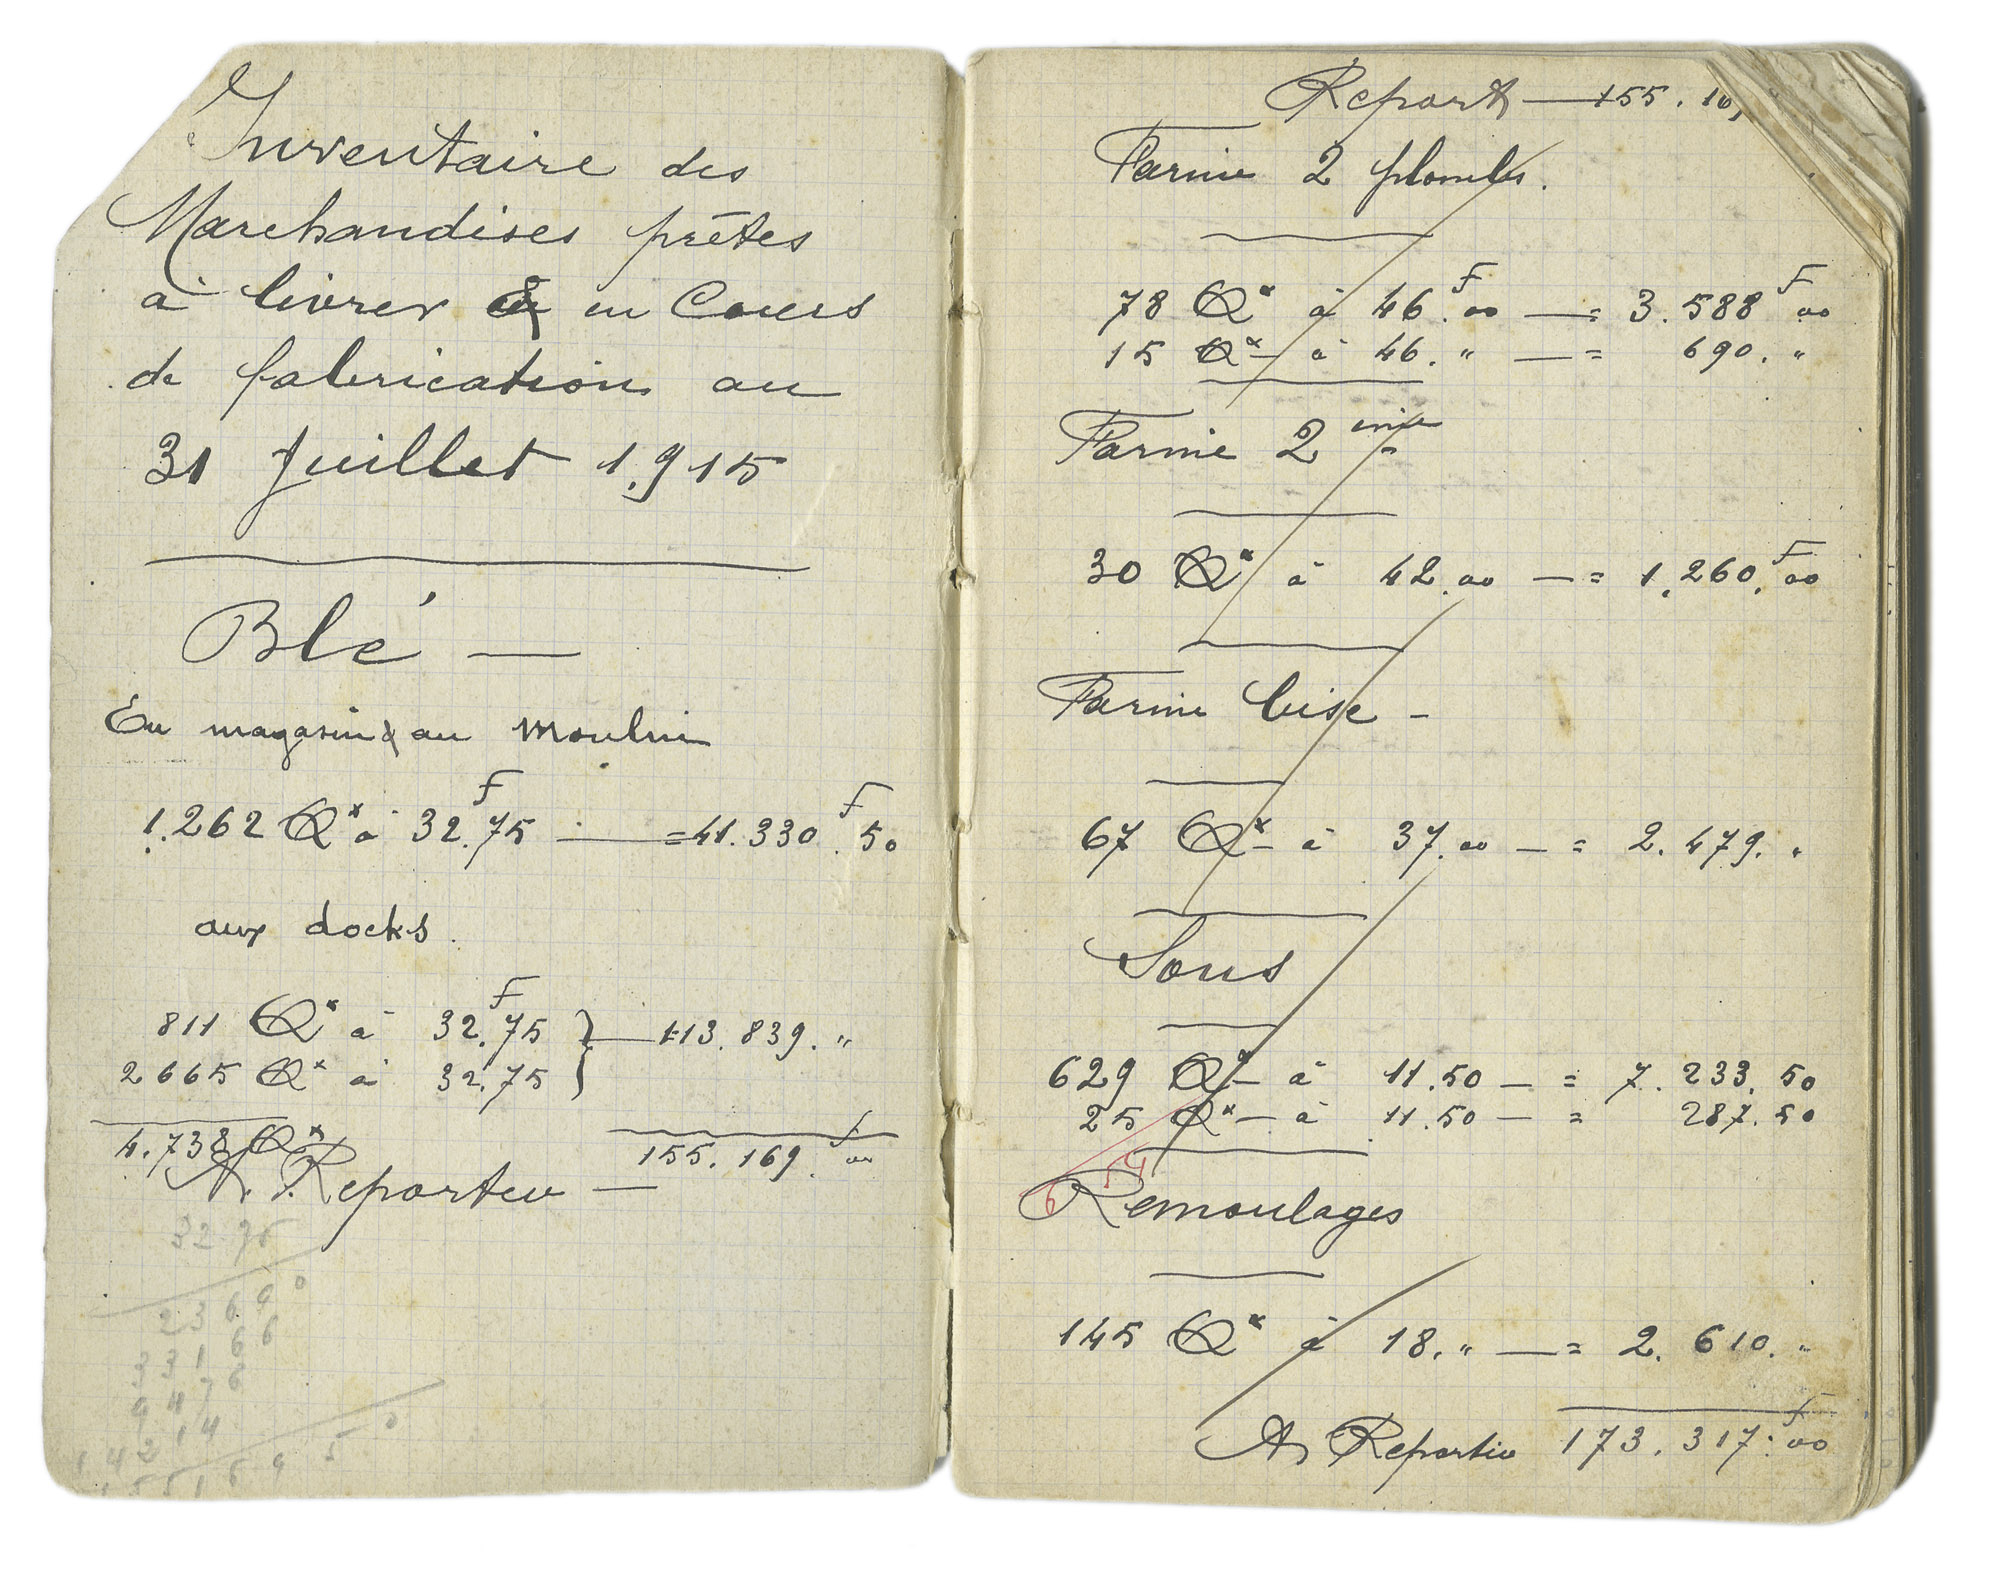 Inventaire des
Marchandises prêtes
à livrer & en Cours
de fabrication au
31 Juillet 1.915
Blé —
En magasin & au Moulin
1.262 Qx à 32.F75 — = 41.330F.50
aux docks.
811 Qx à 32.F75 } — 113.839. "
2665 Qx à 32.75
4.738 Qx 155.169.F00
A Reporter —
32 75
2369 0
331 66
947 6
142 14
155169 5 0
Report — 155.16
Farine 2 plombs.
78 Qx à 46.F00 — = 3.588F00
15 Qx — à 46. " — = 690. "
Farine 2
30 Qx à 42.00 — = 1.260.F00
Farine bise —
67 Qx — à 37.00 — = 2.479. "
Sons
629 Qx — à 11.50 — = 7.233.50
25 Qx — à 11.50 — = 287.50
Remoulages
145 Qx à 18. " — = 2.610. "
A Reporter 173.317.F00